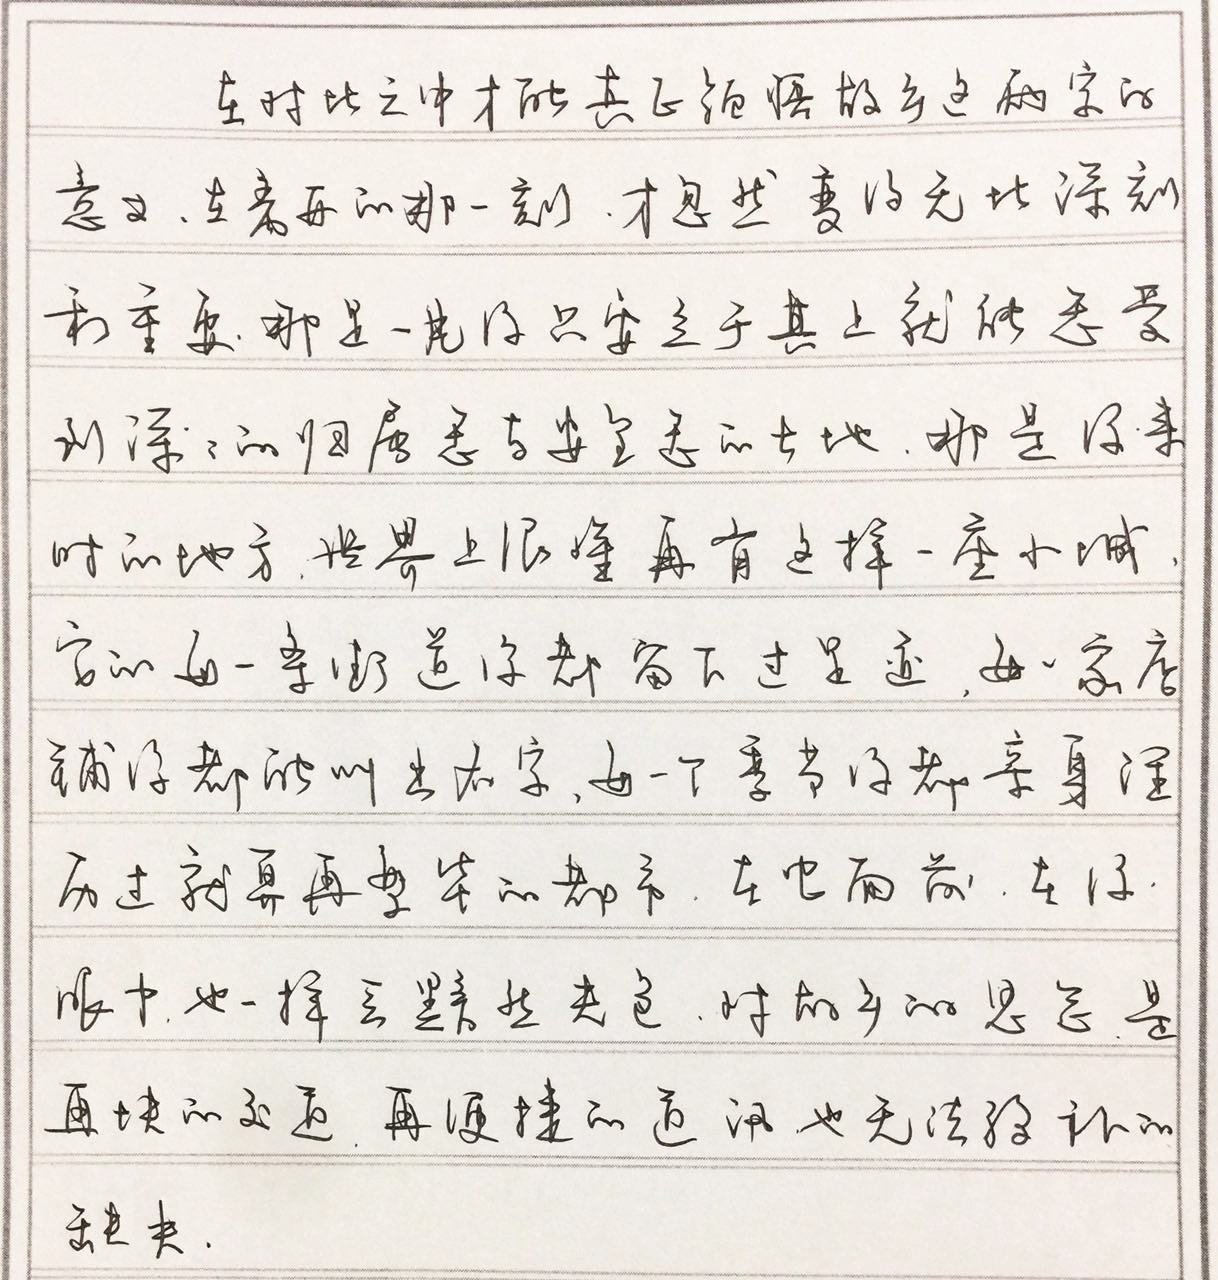 在对比之中才能真正领悟故乡这两字的
意义、在离开的那一刻、才忽然变得无比深刻
和重要、那是一片你只要立于其上就能感受
到深深的归属感与安全感的土地、那是你来
时的地方、世界上很难再有这样一座小城、
它的每一条街道你都留下过足迹、每一家店
铺你都能叫出名字、每一个季节你都亲身经
历过就算再繁华的都市、在它面前、在你
眼中、也一样会黯然失色、对故乡的思念、是
再快的交通、再便捷的通讯、也无法弥补的
缺失.